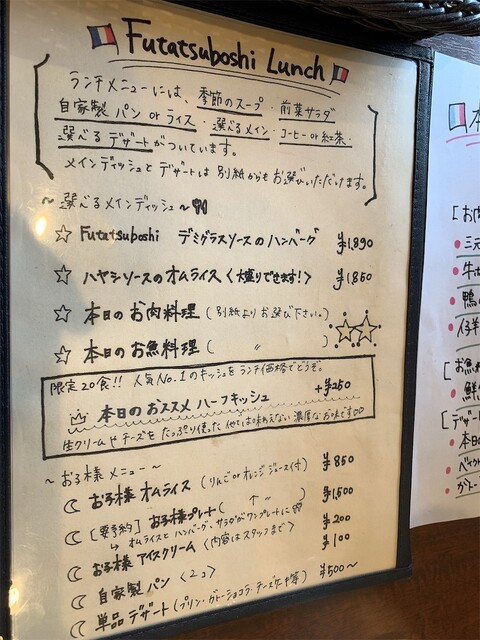 Futatsuboshi Lunch
ランチメニューには、季節のスープ・前菜サラダ
自家製 パン or ライス・選べるメイン・コーヒー or 紅茶・
選べる デザートがついています。
メインディッシュとデザートは別紙からもお選びいただけます。
～選べるメインディッシュ～
☆ Futatsuboshi デミグラスソースのハンバーグ ¥1,890
☆ ハヤシソースのオムライス〈大盛りできます!〉 ¥1,850
☆ 本日のお肉料理(別紙よりお選び下さい。)
☆ 本日のお魚料理( 〃 )
限定20食!! 人気No.1のキッシュをランチ価格でどうぞ。
本日のおススメ ハーフキッシュ +¥250
生クリームやチーズをたっぷり使った他では味わえない濃厚なお味です
～お子様メニュー～
☾ お子様オムライス(りんご or オレンジジュース付) ¥850
☾ [要予約] お子様プレート( ↑ 〃 ) ¥1,500
↳ オムライスとハンバーグ・サラダがワンプレートに
☾ お子様アイスクリーム〈内容はスタッフまで〉 ¥200
☾ 自家製パン〈2コ〉 ¥100
☾ 単品デザート(プリン・ガトーショコラ・チーズケーキ等) ¥500～
[お肉
・三元
・牛
・鴨
・仔羊
[お魚
・鮮
[デザー
・本日
・ベイク
・ガトー